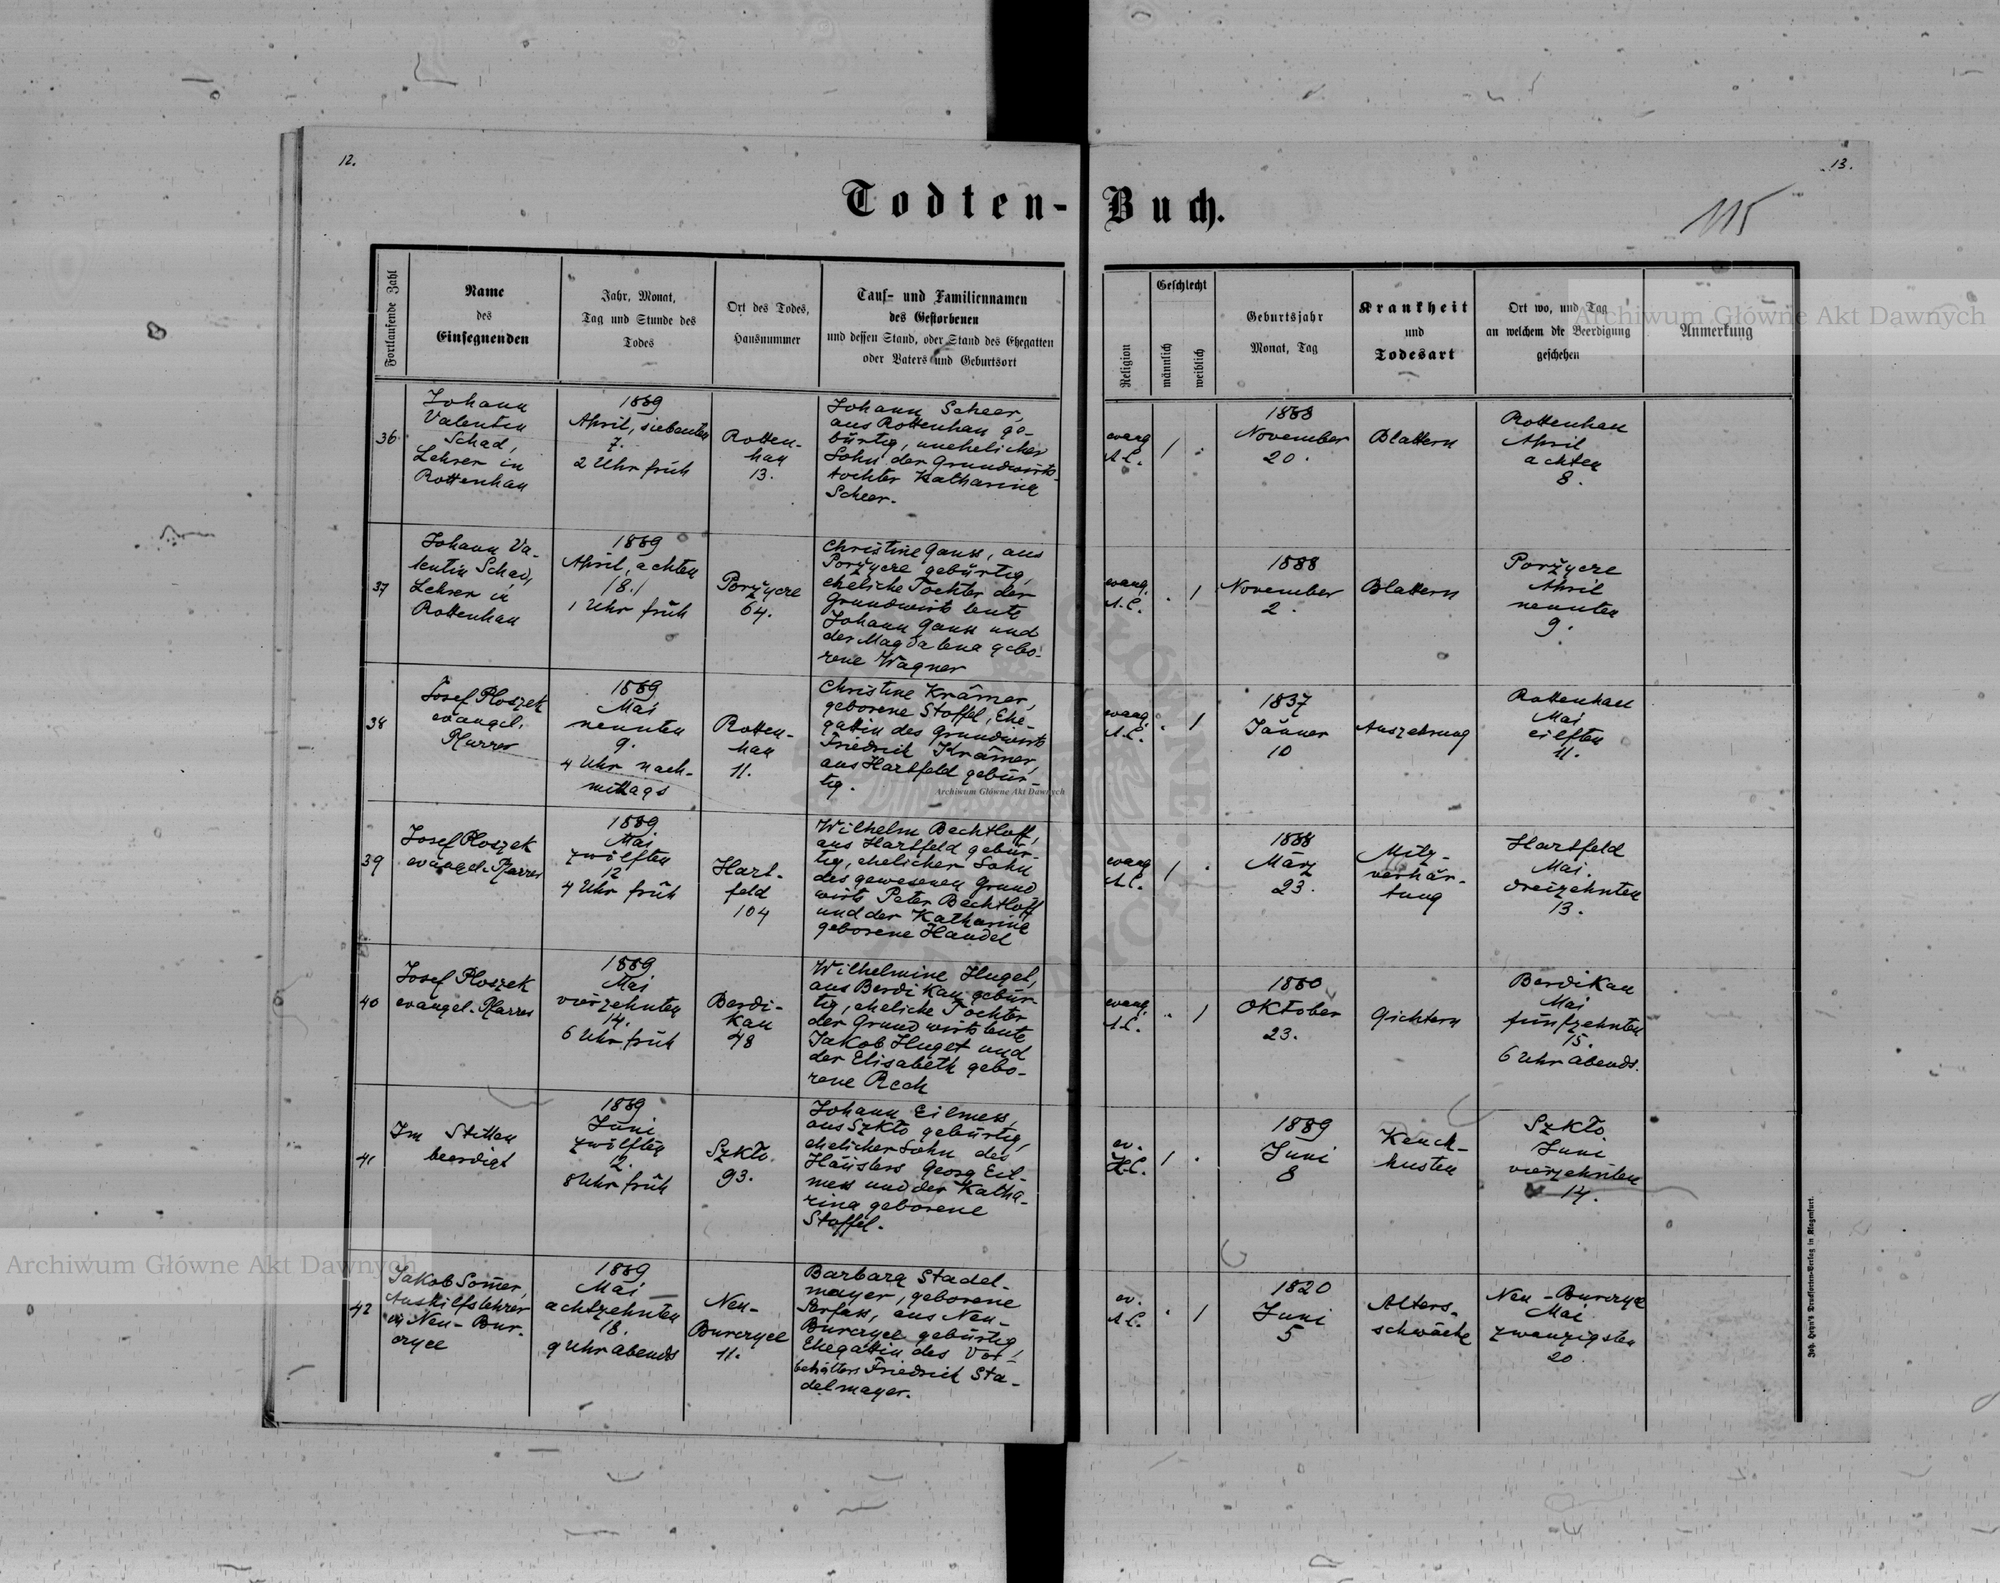 12.
13.
Todten-Buch.
115
Fortlaufende Zahl
Name
des
Einsegnenden
Jahr, Monat,
Tag und Stunde des
Todes
Ort des Todes,
Hausnummer
Tauf- und Familiennamen
des Gestorbenen
und dessen Stand, oder Stand des Ehegatten
oder Vaters und Geburtsort
Religion
Geschlecht
männlich
weiblich
Geburtsjahr
Monat, Tag
Krankheit
und
Todesart
Ort wo, und Tag
an welchem die Beerdigung
geschehen
Anmerkung
36
Johann
Valentin
Schad,
Lehrer in
Rottenhan
1889
April, siebenten
7.
2 Uhr früh
Rotten-
han
13.
Johann Scheer,
aus Rottenhan ge-
bürtig, unehelicher
Sohn der Grundwirts-
tochter Katharina
Scheer.
evang
A.C.
1
.
1888
November
20.
Blattern
Rottenhan
April
achten
8.
37
Johann Va-
lentin Schad,
Lehrer in
Rottenhan
1889
April, achten
/8./
1 Uhr früh
Porżycze
64.
Christine Gauss, aus
Porżycze gebürtig,
eheliche Tochter der
Grundwirtsleute
Johann Gauss und
der Magdalena gebo-
rene Wagner
evang.
A.C.
.
1
1888
November
2.
Blattern
Porżycze
April
neunten
9.
38
Josef Ploszek
evangel.
Pfarrer
1889
Mai
neunten
9.
4 Uhr nach-
mittags
Rotten-
han
11.
Christine Krämer,
geborene Stoffel, Ehe-
gattin des Grundwirts
Friedrich Krämer,
aus Hartfeld gebür-
tig.
evang.
A.C.
.
1
1837
Jänner
10
Auszehrung
Rottenhan
Mai
eilften
11.
39
Josef Ploszek
evangel. Pfarrer
1889
Mai
zwölften
12
4 Uhr früh
Hart-
feld
104
Wilhelm Bechtloff,
aus Hartfeld gebür-
tig, ehelicher Sohn
des gewesenen Grund
wirts Peter Bechtloff
und der Katharina
geborene Handel
evang
A.C.
1
.
1888
März
23.
Milz-
verhär-
tung
Hartfeld
Mai.
dreizehnten
13.
40
Josef Ploszek
evangel. Pfarrer
1889
Mai
vierzehnten
14.
6 Uhr früh
Berdi-
kau
48
Wilhelmine Huget,
aus Berdikau gebür-
tig, eheliche Tochter
der Grundwirtsleute
Jakob Huget und
der Elisabeth gebo-
rene Rech
evang.
A.C.
.
1
1880
Oktober
23.
Gichtern
Berdikau
Mai
fünfzehnten
15.
6 Uhr abends.
41
Im Stillen
beerdigt
1889
Juni
zwölften
12.
8 Uhr früh
Szkło
93.
Johann Eilmess,
aus Szkło gebürtig,
ehelicher Sohn des
Häuslers Georg Eil-
mess und der Katha-
rina geborene
Stoffel.
ev.
H.C.
1
.
1889
Juni
8
Keuch-
husten
Szkło
Juni
vierzehnten
14.
42
Jakob Somer,
Aushilfslehrer
in Neu-Bur-
czyce
1889
Mai
achtzehnten
18.
9 Uhr abends
Neu-
Burczyce
11.
Barbara Stadel-
mayer, geborene
Serfass, aus Neu-
Burczyce gebürtig,
Ehegattin des Vor-
behälters Friedrich Sta-
delmayer.
ev.
A.C.
.
1
1820
Juni
5
Alters-
schwäche
Neu-Burczyce
Mai
zwanzigsten
20
Joh. Heyn's Drucksorten-Verlag in Klagenfurt.
Archiwum Główne Akt Dawnych
Archiwum Główne Akt Dawnych
Archiwum Główne Akt Dawnych